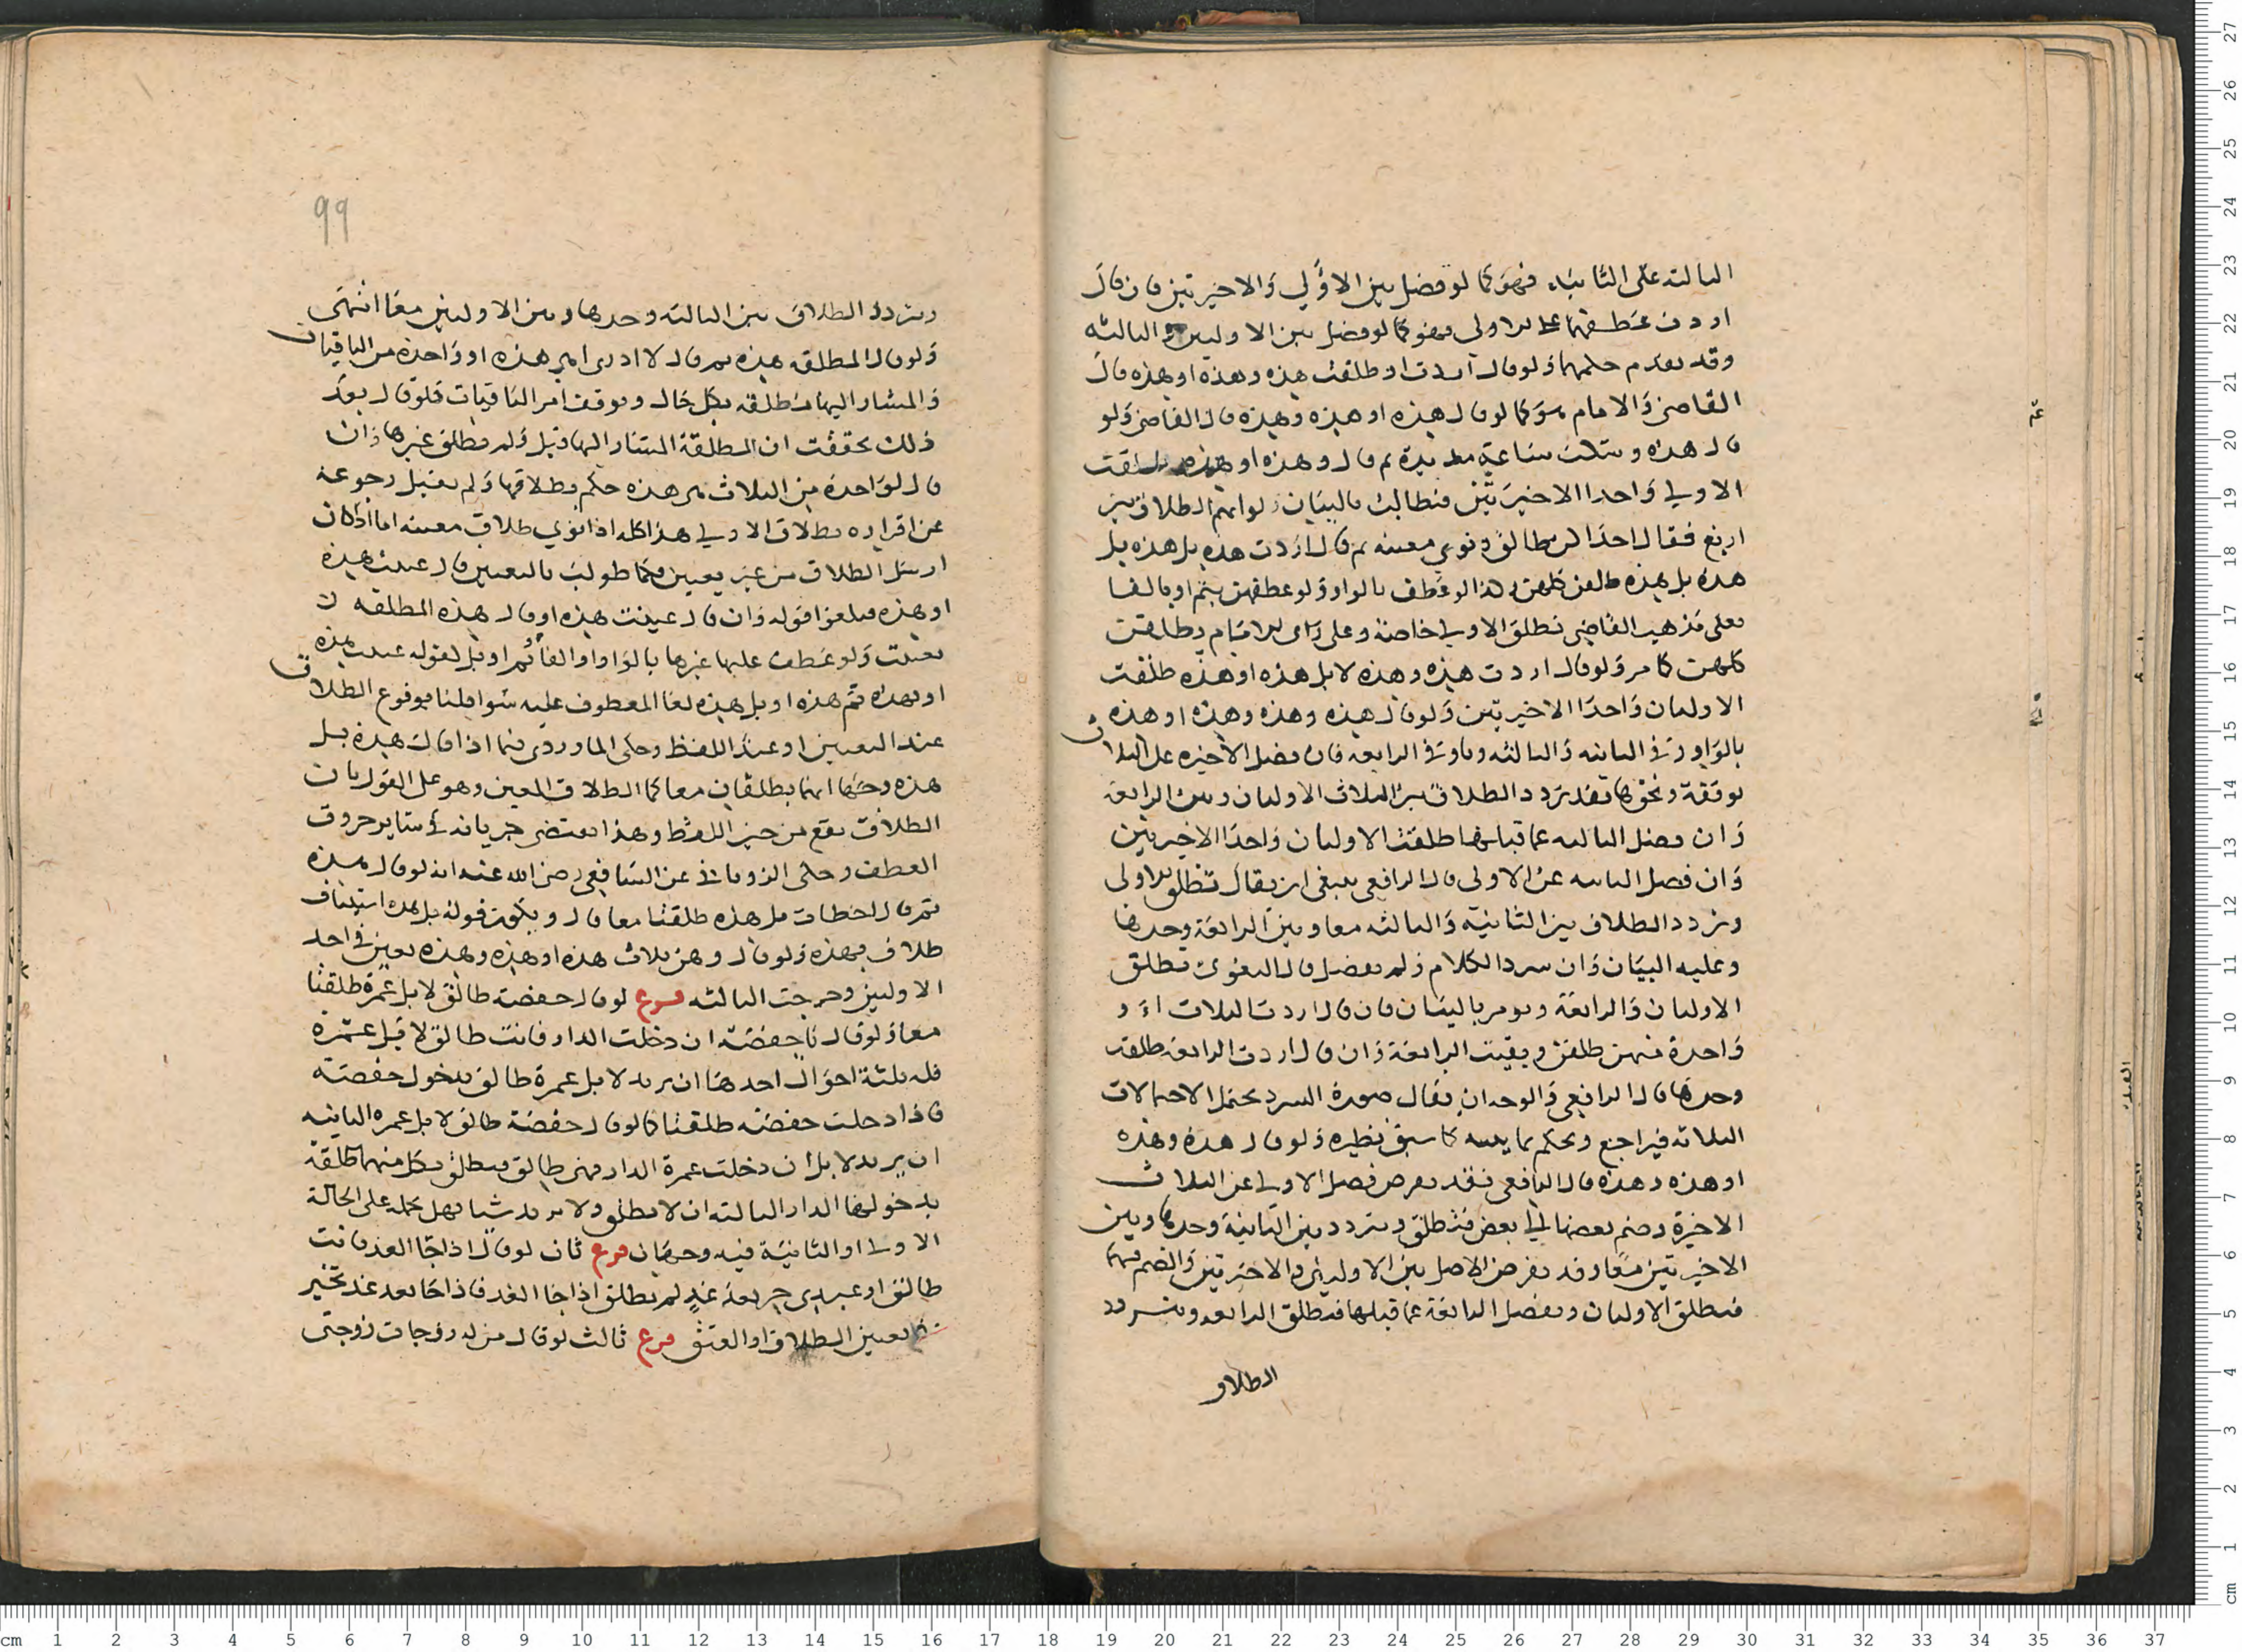 الثالثة على الثانية فهو كما لو فصل بين الاولي والاخيرتين فان قال
اردت عطفها على الاولى فهو كما لو فصل بين الاوليين والثالثة
وقد تقدم حكمهما ولو قال اردت او طلقت هذه وهذه او هذه قال
القاضي والامام هو كما لو قال هذه او هذه وهذه قال القاضي ولو
قال هذه وسكت ساعة ثم قال وهذه او هذه طلقت
الاولي واحدا الاخيرتين فيطالب بالبيان ولو ابهم الطلاق بين
اربع فقال احداكن طالق ونوي معينه ثم قال اردت هذه بل هذه بل
هذه بل هذه طلقن كلهن وكذا لو عطف بالواو ولو عطفهن بثم او بالفا
فعلى مذهب القاضي تطلق الاولي خاصة وعلى راى الامام يطلقن
كلهن كما مر ولو قال اردت هذه وهذه لا بل هذه او هذه طلقت
الاوليان واحدا الاخيرتين ولو قال هذه وهذه وهذه او هذه
بالواو في الثانيه والثالثه وباو في الرابعه فان فصل الاخيره عن الثلاث
بوقفة ونحوها فقد تردد الطلاق بين الثلاث الاوليان وبين الرابعة
وان فصل الثالثه عما قبلها طلقت الاوليان واحدا الاخيرتين
وان فصل الثانيه عن الاولى قال الرافعي ينبغي ان يقال تطلق الاولى
وتردد الطلاق بين الثانية والثالثه معا وبين الرابعة وحدها
وعليه البيان وان سرد الكلام ولم يفصل قال البغوى تطلق
الاوليان والرابعة ويومر بالبيان فان قال اردت الثلاث او
واحدة منهن طلقن وبقيت الرابعة وان قال اردت الرابعة طلقت
وحدها قال الرافعي والوجه ان يقال صورة السرد تحتمل الاحتمالات
الثلاثه فيراجع ويحكم بما يبينه كما سبق نظيره ولو قال هذه وهذه
او هذه وهذه قال الرافعي فقد يفرض فصل الاولي عن الثلاث
الاخيرة وضم بعضها الي بعض فتطلق ويتردد بين الثانية وحدها وبين
الاخيرتين معا وقد يفرض الاصل بين الاوليين والاخيرتين والضم فيهما
فتطلق الاوليان ويفصل الرابعة عما قبلها فتطلق الرابعه ويتردد
الطلاق
99
ويتردد الطلاق بين الثالثه وحدها وبين الاوليين معا انتهى
ولو قال المطلقه هذه ثم قال لا ادرى اهي هذه او واحدة من الباقيات
فالمشار اليها مطلقه بكل حال ويوقف امر الباقيات فلو قال بعد
ذلك تحققت ان المطلقة المشار اليها قبل ولم تطلق غيرها وان
قال لواحدة من الثلاث هي هذه حكم بطلاقها ولم يقبل رجوعه
عن اقراره بطلاق الاولي هذا كله اذا نوي طلاق معينه اما اذا كان
ارسل الطلاق من غير تعيين فكما طولب بالتعيين قال عينت هذه
او هذه فيلغوا قوله وان قال عينت هذه او قال هذه المطلقه
تعينت ولو عطف عليها غيرها بالواو او الفا او ثم او بل لقوله عينت هذه
او بهذه ثم هذه او بل هذه لغا المعطوف عليه سوا قلنا بوقوع الطلاق
عند التعيين او عند اللفظ وحكى الماوردي فيما اذا قال هذه بل
هذه وجها انهما يطلقان معا كما الطلاق المعين وهو على القول بان
الطلاق يقع من حين اللفظ وهذا يقتضى جريانه في ساير حروف
العطف وحكى الروياني عن الشافعي رضي الله عنه انه لو قال هذه
ثم قال اخطات بل هذه طلقتا معا قال ويكون قوله بل هذه استيناف
طلاق بهذه ولو قال وهن ثلاث هذه او هذه وهذه تعين في احد
الاوليين وخرجت الثالثه فرع لو قال حفصة طالق لا بل عمرة طلقتا
معا ولو قال يا حفصة ان دخلت الدار فانت طالق لا بل عمرة
فله ثلثة احوال احدها ان يريد لا بل عمرة طالق بدخول حفصة
فاذا دخلت حفصة طلقتا كما لو قال حفصة طالق لا بل عمره الثانيه
ان يريد لا بل ان دخلت عمرة الدار فهى طالق فيطلق بكل منهما طلقة
بدخولها الدار الثالثه ان لا يطلق ولا يريد شيا فهل يحمله على الحالة
الاولي او الثانية فيه وجهان فرع ثان لو قال اذا جا الغد فانت
طالق او عبدي حر بعد غد لم يطلق اذا جا الغد فاذا جا بعد غد تخير
في تعيين الطلاق او العتق فرع ثالث لو قال من له زوجات زوجتى